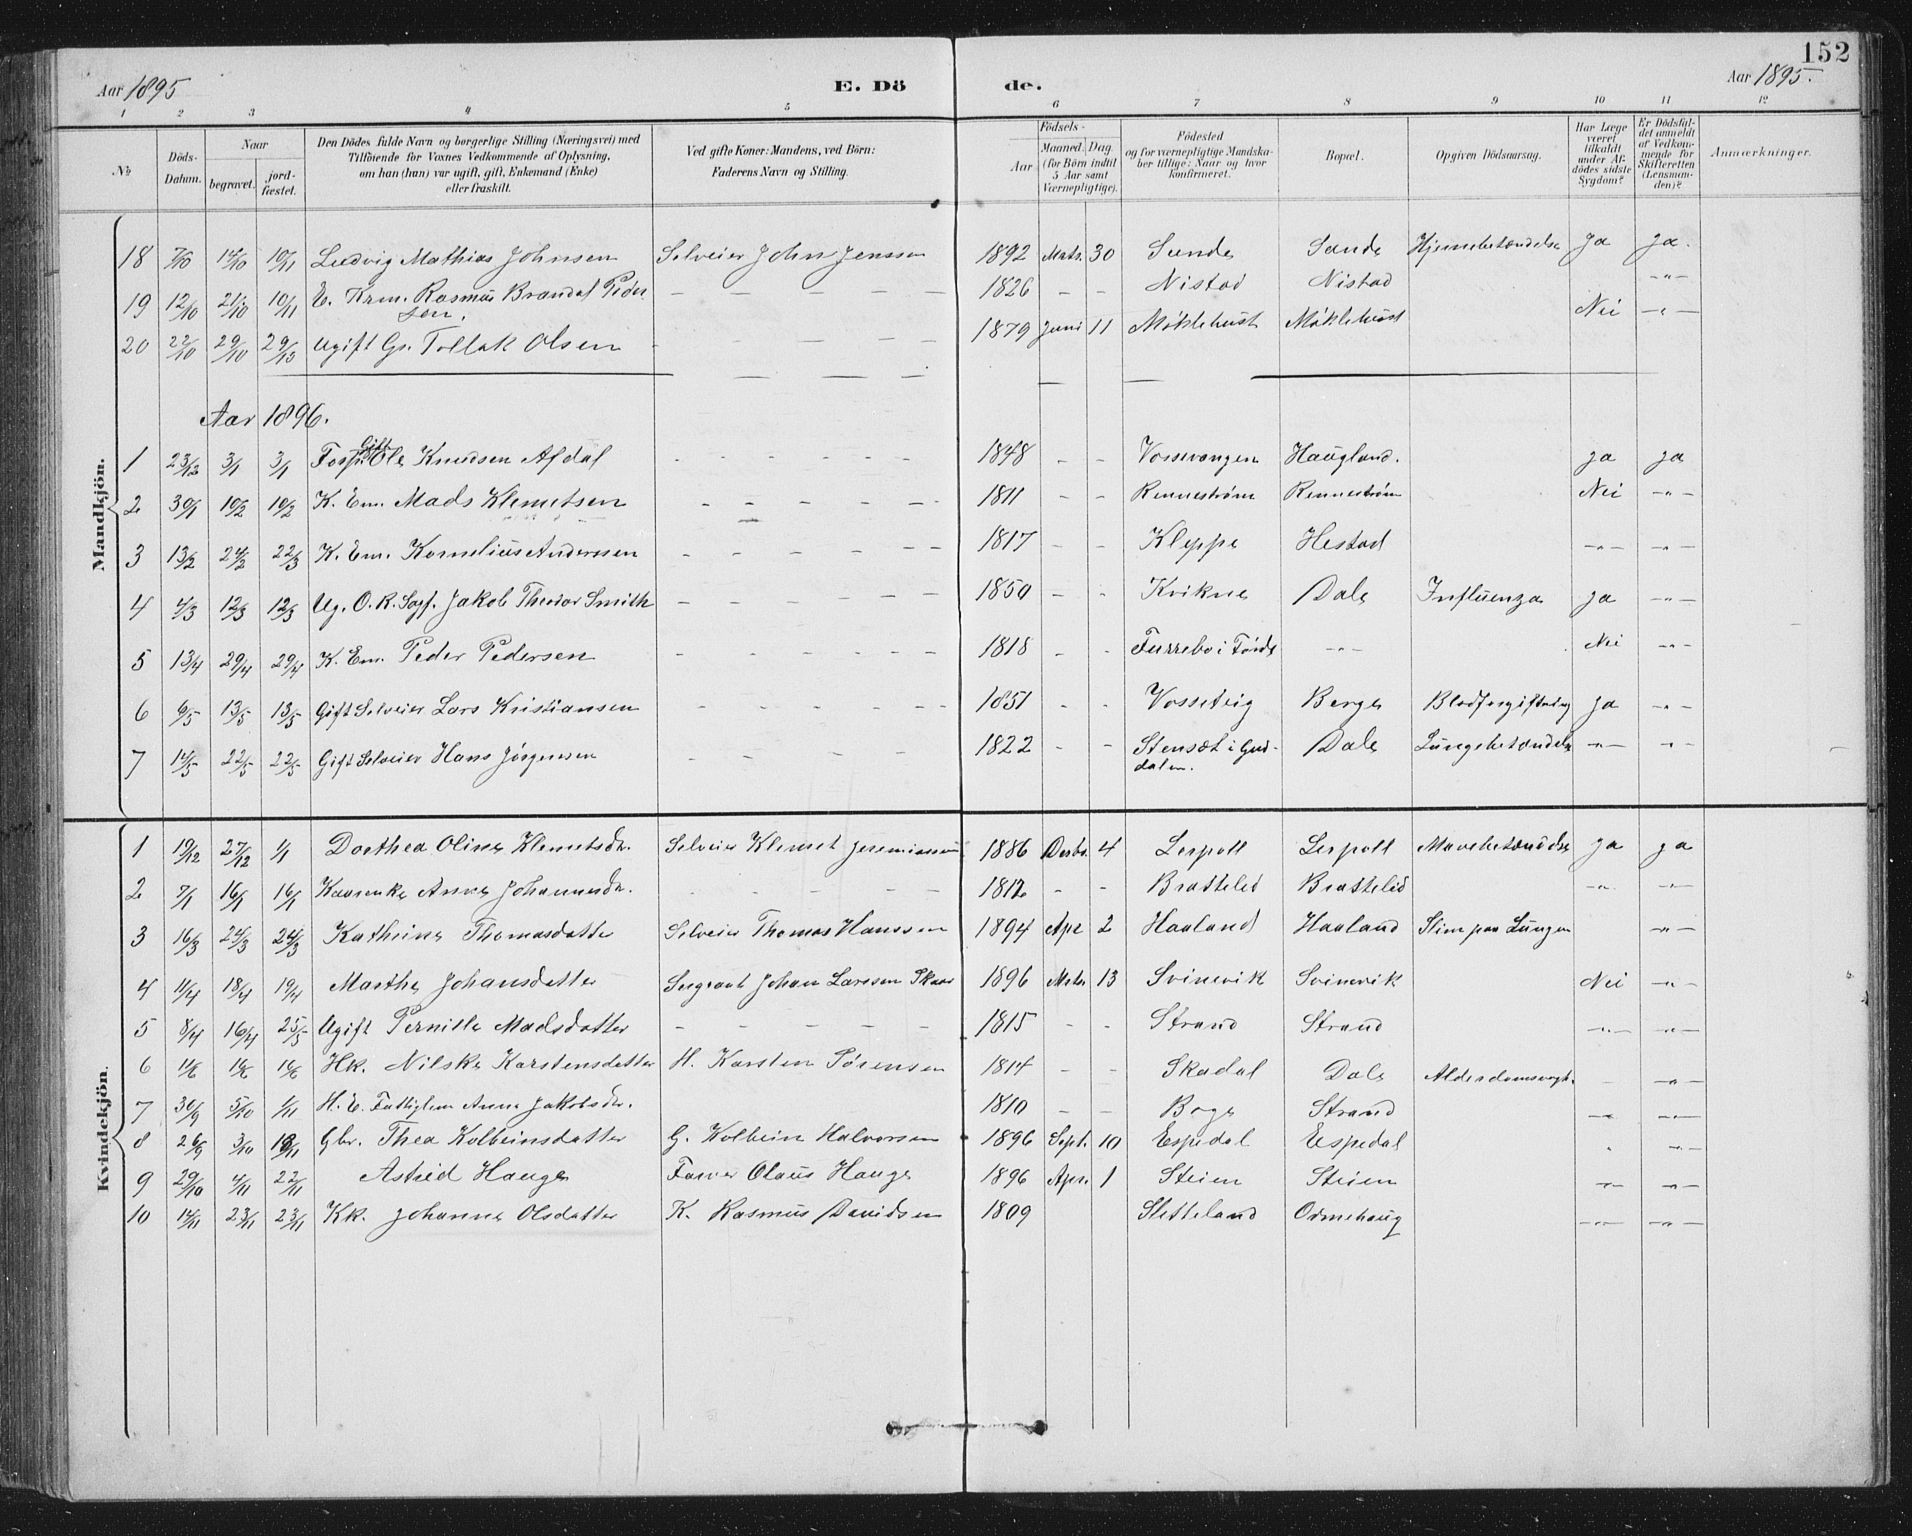 152
Aar 1895
E. Dö de.
Aar 1895.
1 2 3 4 5 6 7 8 9 10 11 12
No
Döds-Datum.
Naar
begravet.
jord-fæstet.
Den Dödes fulde Navn og borgerlige Stilling (Næringsvei) med
Tilföiende for Voxnes Vedkommende af Oplysning,
om han (hun) var ugift, gift, Enkemand (Enke)
eller fraskilt.
Ved gifte Koner: Mandens, ved Börn:
Faderens Navn og Stilling.
Födsels-
Aar
Maaned. Dag.
(for Börn indtil
5 Aar samt
Værnepligtige).
Födested
og for værnepligtige Mandska-
ber tillige: Naar og hvor
konfirmeret.
Bopæl.
Opgiven Dödsaarsag.
Har Læge
været
tilkaldt
under Af-
dödes sidste
Sygdom?
Er Dödsfal-
det anmeldt
af Vedkom-
mende for
Skifteretten
(Lensman-
den)?
Anmærkninger.
Mandkjön.
18 7/10 14/10 10/11 Ludvig Mathias Johnsen Selveier John Jenssen 1892 Mats. 30 Sande Sande Hjernebetændelse Ja Ja.
19 12/10 21/10 10/11 E. Krm. Rasmus Brandal Peder- - - - - - 1826 - - Nistad Nistad -"-
sen.
20 22/10 29/10 29/10 Ugift Gs. Tollak Olsen - - - - - 1879 Juni 11 Møklebust Møklebust Nei -"-
Aar 1896.
1 23/12 3/1 3/1 Forp. Gift Ole Knudsen Afdal - - - - - 1848 - - Vossevangen Haugland. Ja Ja
2 30/1 10/2 10/2 K. Em. Mads Klemetsen - - - - - 1811 - - Rennestrøm Rennestrøm Nei -"-
3 13/2 24/2 22/3 K. Em. Kornelius Anderssen - - - - - 1817 - - Kleppe Hestad -"- -"-
4 4/3 12/3 12/3 Ug. O. R. Sagf. Jakob Theodor Smith - - - - - 1850 - - Kvikne Dale Influenza Ja -"-
5 13/4 29/4 29/4 K. Em. Peder Pedersen - - - - - 1818 - - Furrebø i Førde -"- Nei -"-
6 6/5 13/5 13/5 Gift Selveier Lars Kristiansen - - - - - 1851 - - Vosseteig Berge Blodforgiftning Ja -"-
7 14/5 22/5 22/5 Gift Selveier Hans Jørgensen - - - - - 1822 - - Stensæt i Gud- Dale Lungebetændelse -"- -"-
dalen.
Kvindekjön.
1 19/12 27/12 1/1 Dorthea Oline Klemetsdr. Selveier Klemet Jeremiassen 1886 Decbr. 4 Lespoll Lespoll Mavebetændelse Ja Ja
2 7/1 16/1 16/1 Kaarenke Anne Johannesdr. - - - - - 1812 - - Brattelid Brattelid -"- -"-
3 16/3 24/3 24/3 Kathrine Thomasdatter Selveier Thomas Hanssen 1894 Apr 2 Haaland Haaland Slim paa Lungen -"-
4 11/4 18/4 19/4 Marthe Johansdatter Sergeant Johan Larssen Skaar 1896 Mrts. 13 Svinevik Svinevik Nei -"-
5 8/4 16/4 25/5 Ugift Pernille Madsdatter - - - - - 1815 - - Strand Strand -"- -"-
6 1/6 Hk. Nilske Karstensdatter H. Karsten Sørensen 1814 - - Skadal Dale -"-
7 30/9 5/10 1/11 H. E. Fattiglem Anne Jakobsdr. 1810 - - Boge Strand -"- -"-
8 26/9 3/10 Gbr. Thea Kolbeinsdatter G. Kolbein Halvorsen 1896 Sept. 10 Espedal Espedal -"-
9 29/10 4/11 22/11 Astrid Hauge Farver Olaus Hauge 1896 Apr. 1 Steien Steien -"- -"-
10 14/11 23/11 23/11 Kk. Johanne Olsdatter K. Rasmus Davidsen 1809 Sletteland Ormehaug -"- -"-